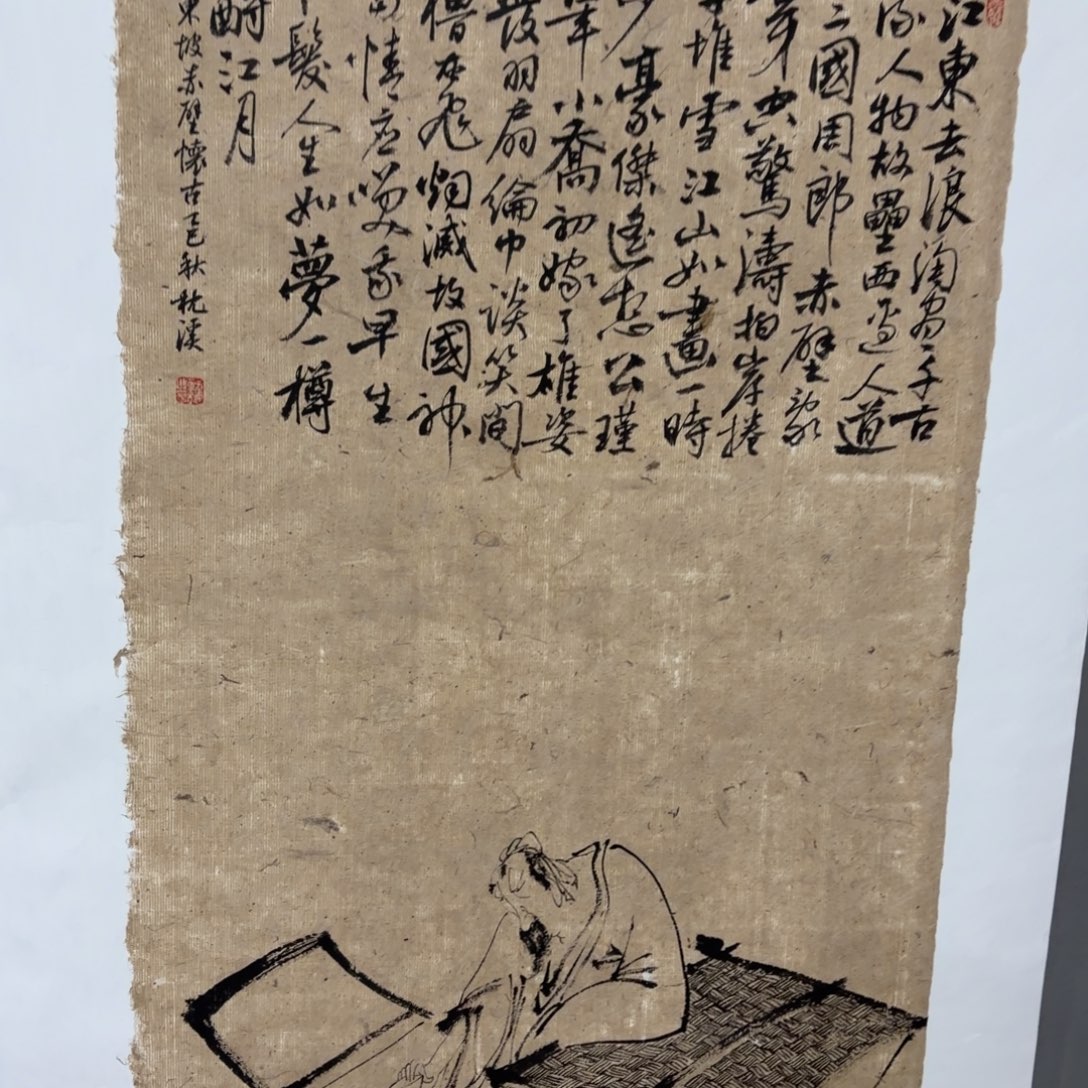 江東去浪淘盡千古
流人物故壘西邊人道
三國周郎赤壁亂
穿空驚濤拍岸捲
堆雪江山如畫一時
少豪傑遙想公瑾
年小喬初嫁了雄姿
發羽扇綸巾談笑間
櫓灰飛烟滅故國神
情應笑我早生
髮人生如夢一樽
酹江月
東坡赤壁懷古乙巳秋枕溪